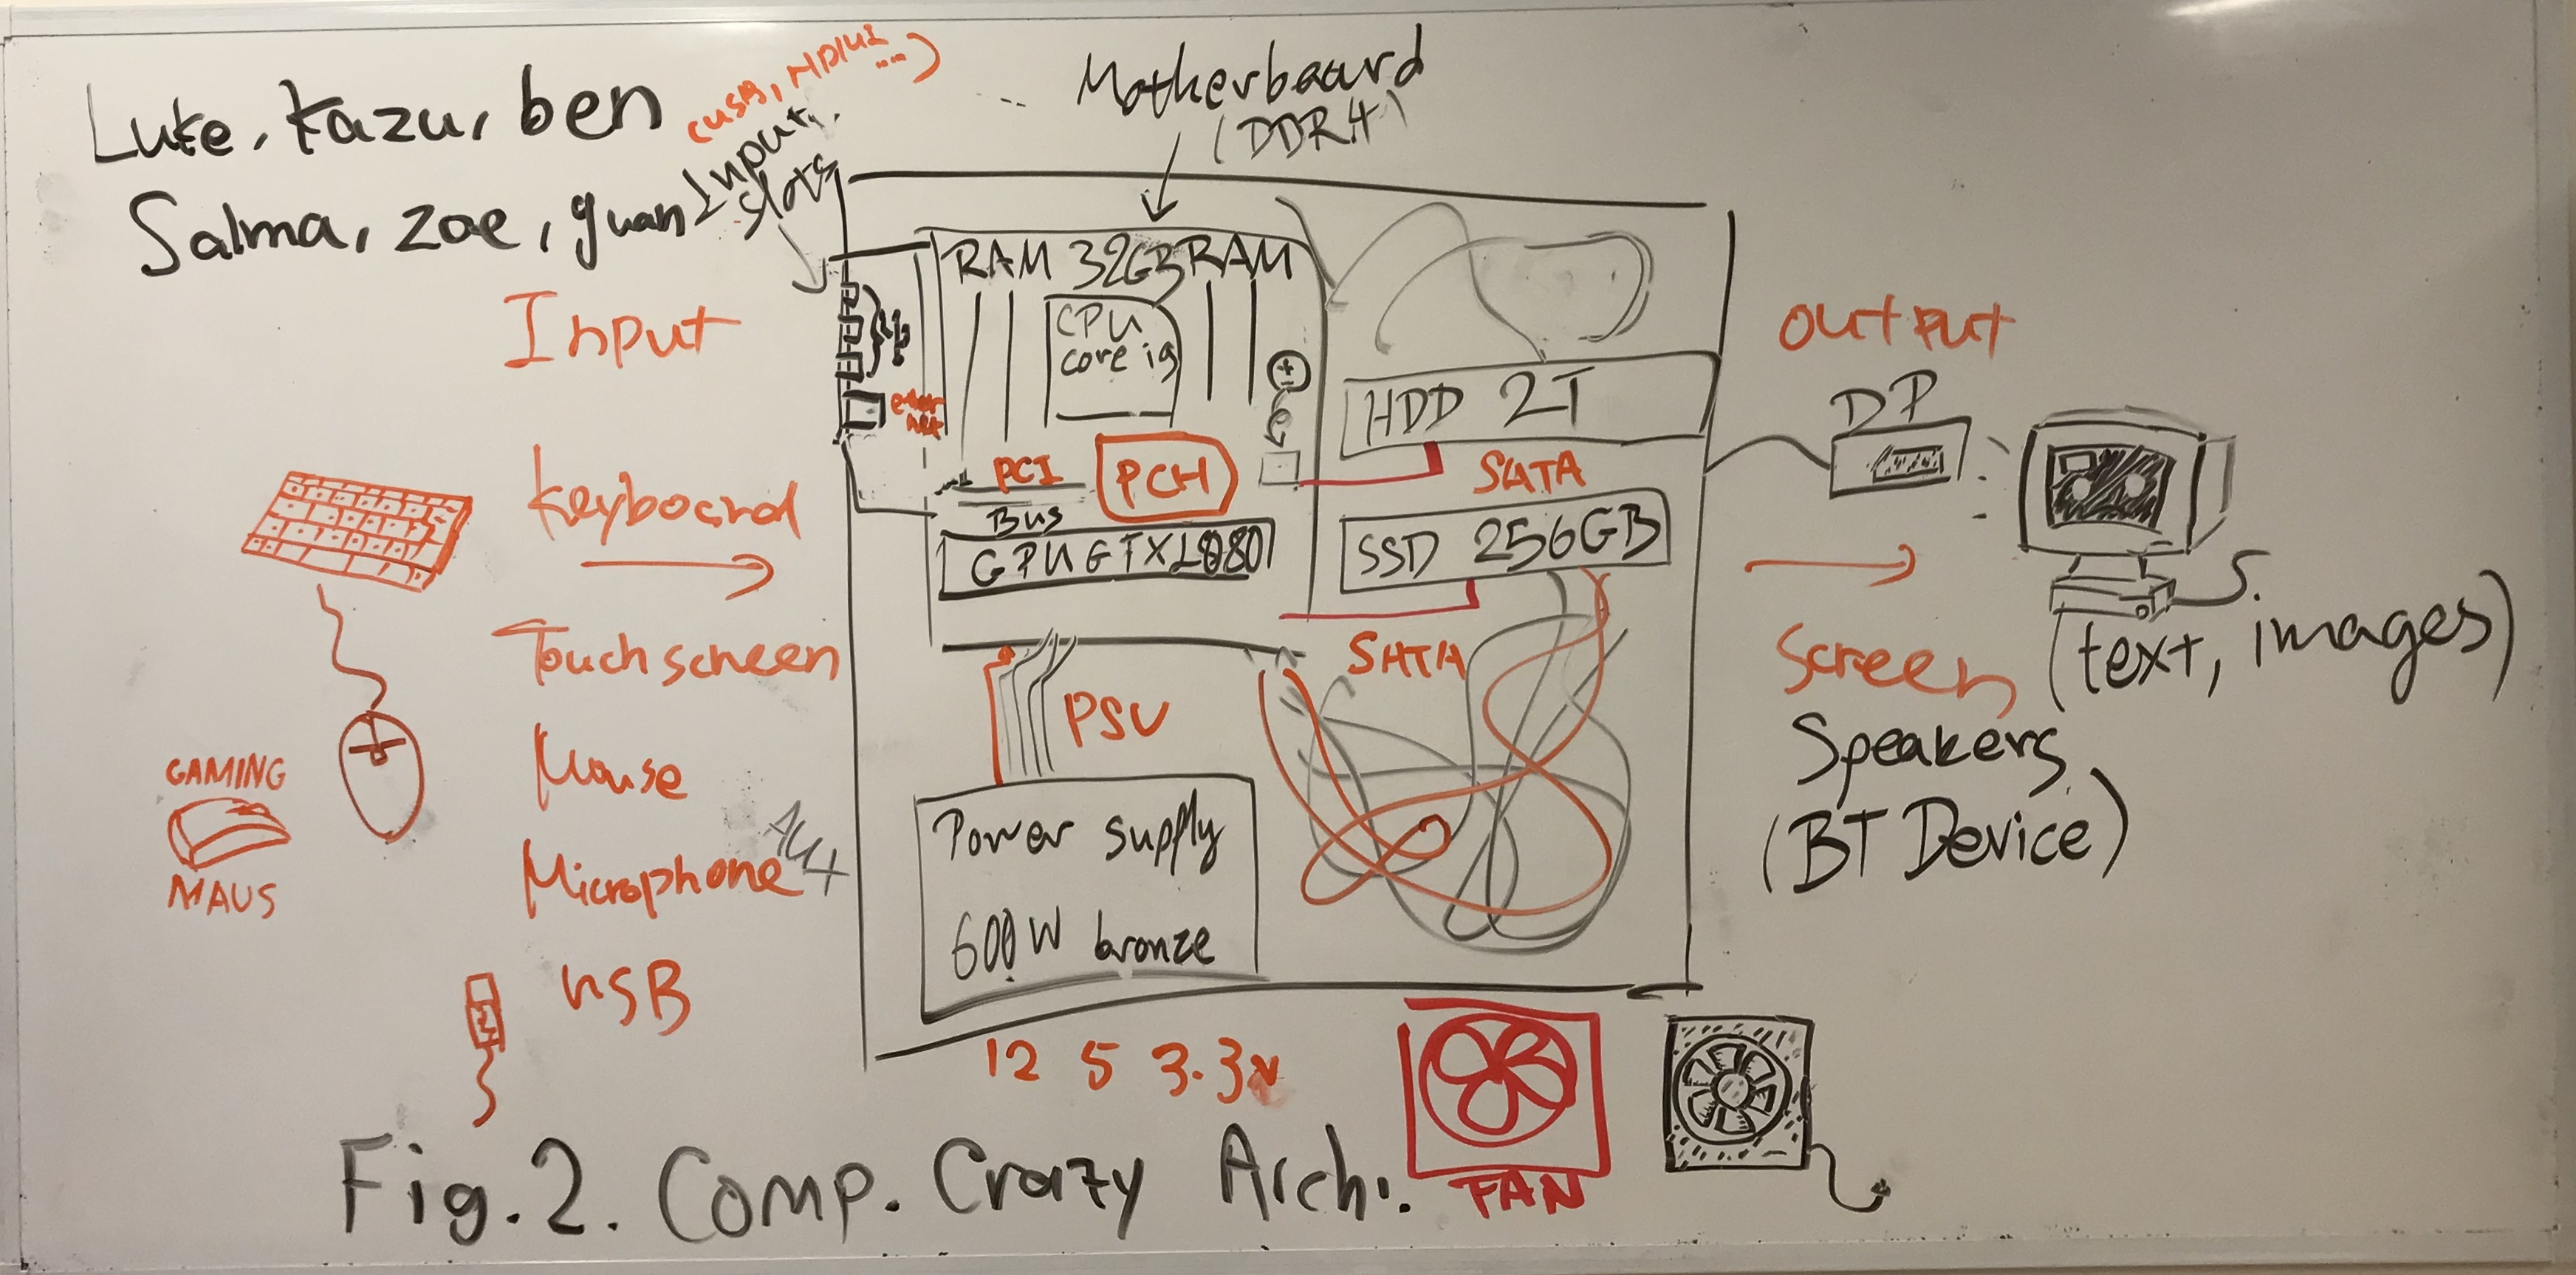 Luke, Kazu, ben
Salma, zoe, guan
(USB, HDMI ....)
Input
slots
Motherboard
(DDR4)
Input
Keyboard
Touch screen
Mouse
Microphone
AUX
USB
GAMING
MAUS
RAM 32GB RAM
CPU
core i9
ether
net
PCI
Bus
PCH
GPU GTX1080
HDD 2T
SATA
SSD 256GB
SATA
PSU
Power supply
600W bronze
12 5 3.3v
output
DP
Screen (text, images)
Speakers
(BT Device)
FAN
Fig. 2. Comp. Crazy Arch.